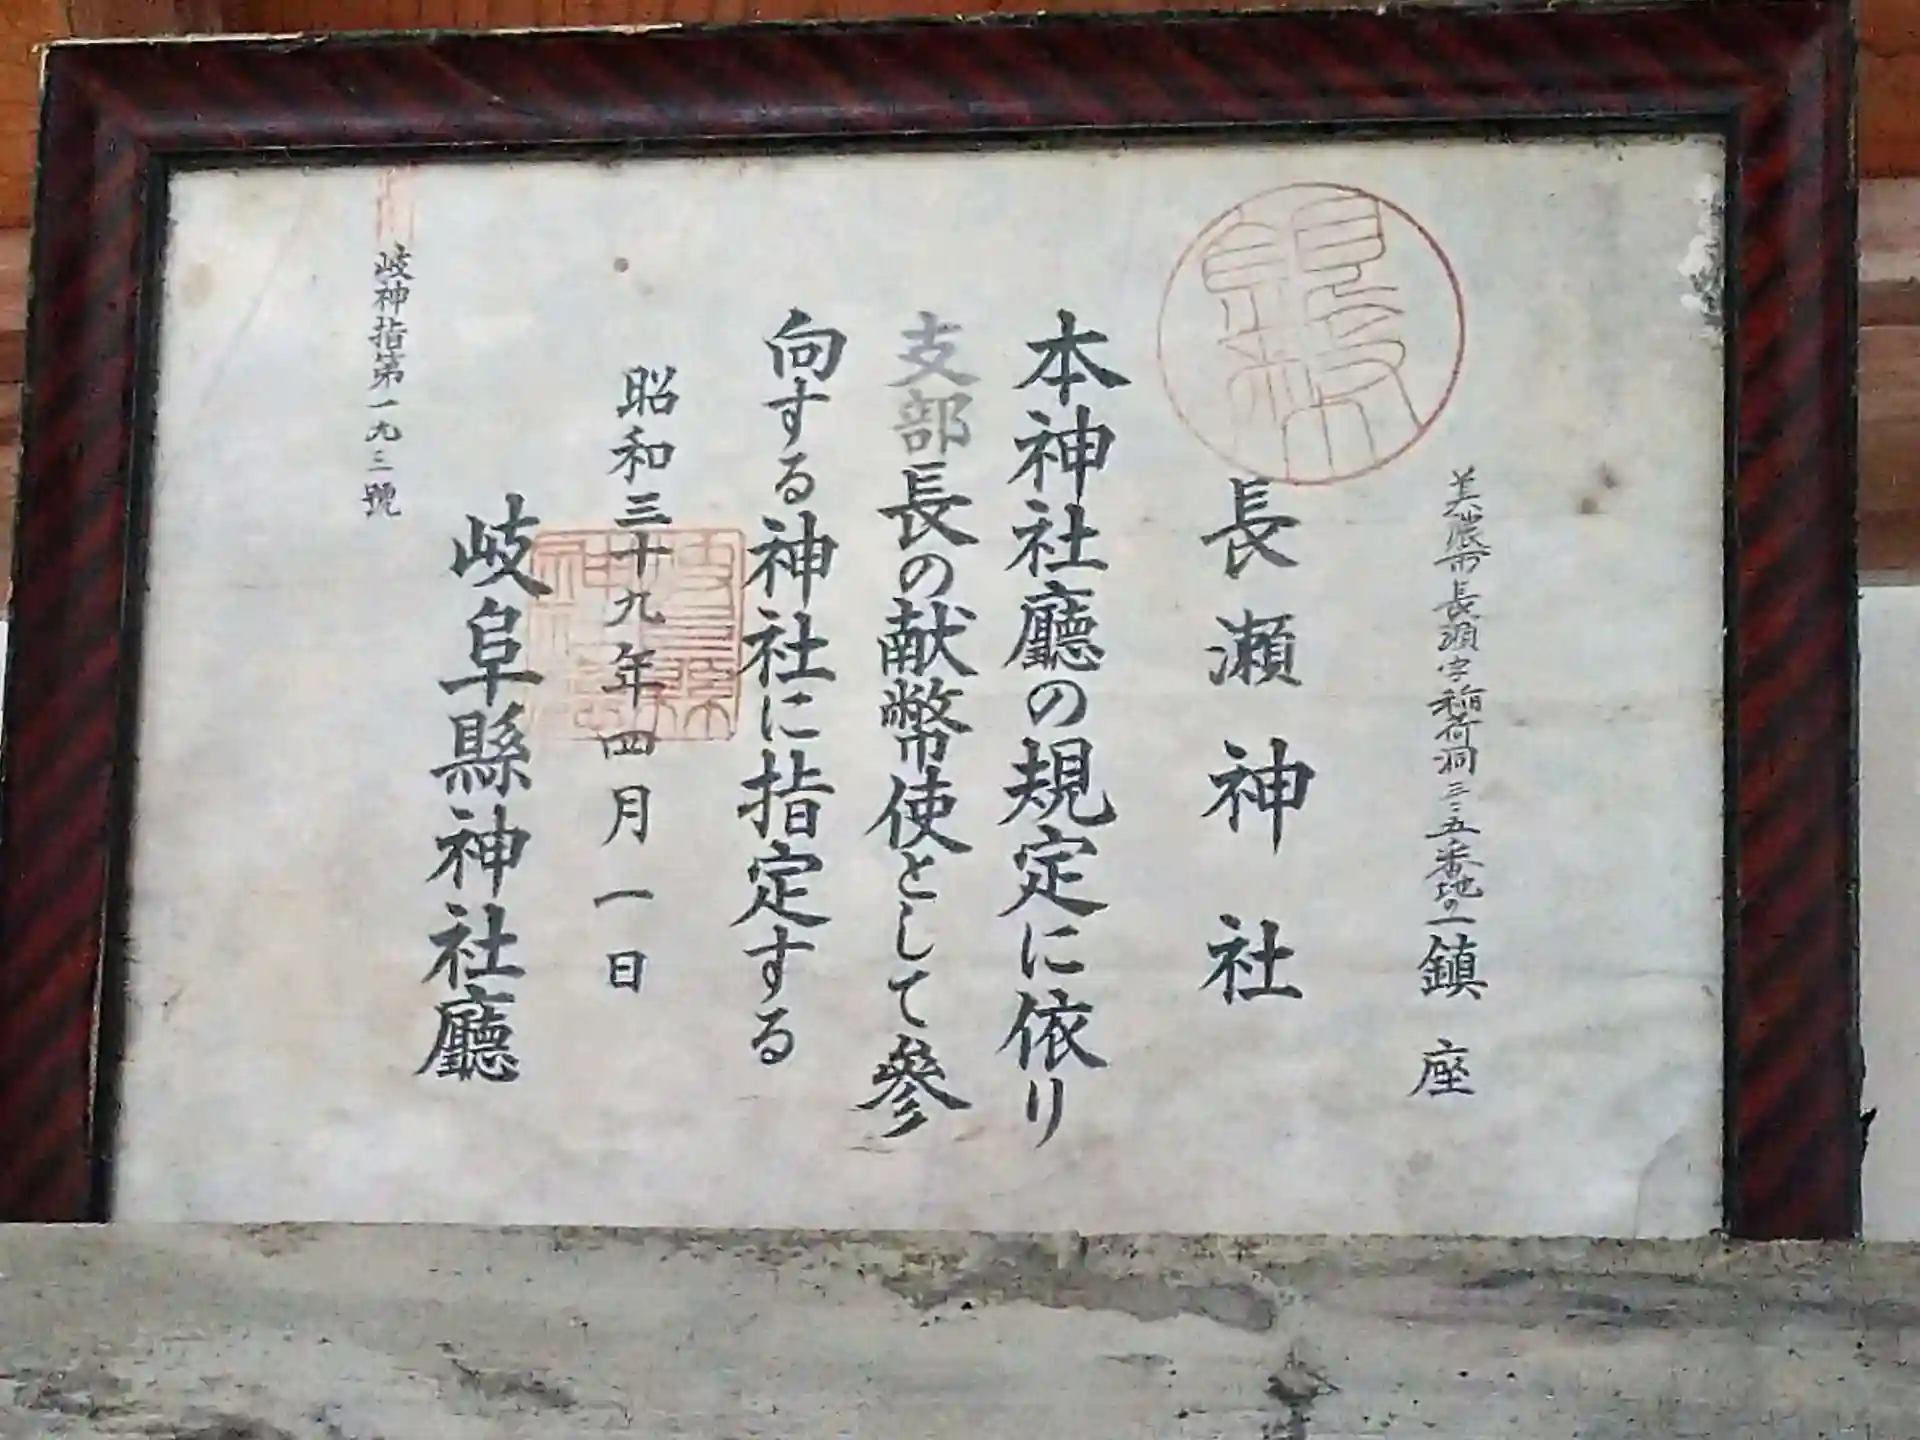 美濃市長瀬字稲荷洞三三五番地の一鎮座
長瀬神社
本神社廳の規定に依り
支部長の献幣使として參
向する神社に指定する
昭和三十九年四月一日
岐阜縣神社廳
岐神指第一九三號